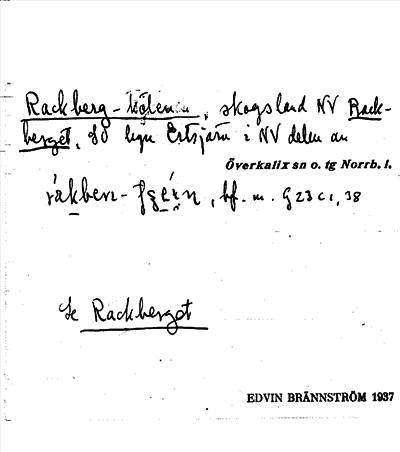 Rackberg-kölen, skogsland NV Rack-
berget, SO byn Ertsjärv i NV delen av
Överkalix sn o. tg Norrb. l.
bf. m. G23C1, 38
Se Rackberget
EDVIN BRÄNNSTRÖM 1937